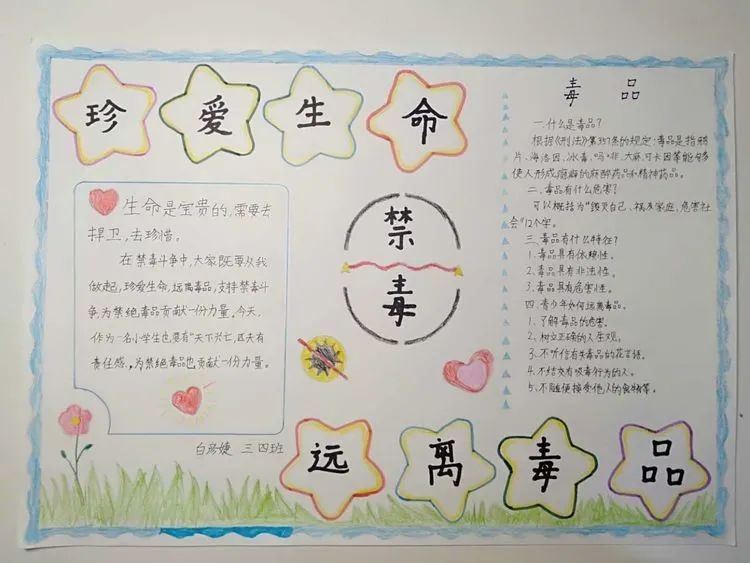 珍爱生命
生命是宝贵的,需要去
捍卫,去珍惜。
在禁毒斗争中,大家既要从我
做起,珍爱生命,远离毒品,支持禁毒斗
争,为禁绝毒品贡献一份力量。今天,
作为一名小学生也要有“天下兴亡,匹夫有
责任感,为禁绝毒品也贡献一份力量。
白彦婕 三四班
禁
毒
毒品
一.什么是毒品?
根据《刑法》第357条的规定:毒品是指鸦
片、海洛因、冰毒、吗啡、大麻、可卡因等能够
使人形成瘾癖的麻醉药品和精神药品。
二、毒品有什么危害?
可以概括为“毁灭自己、祸及家庭,危害社
会”12个字。
三、毒品有什么特征?
1、毒品具有依赖性。
2、毒品具有非法性。
3、毒品具有危害性。
四、青少年如何远离毒品。
1、了解毒品的危害。
2、树立正确的人生观。
3、不听信有关毒品的花言语。
4、不结交有吸毒行为的人。
5、不随便接受他人的食物等。
远离毒品